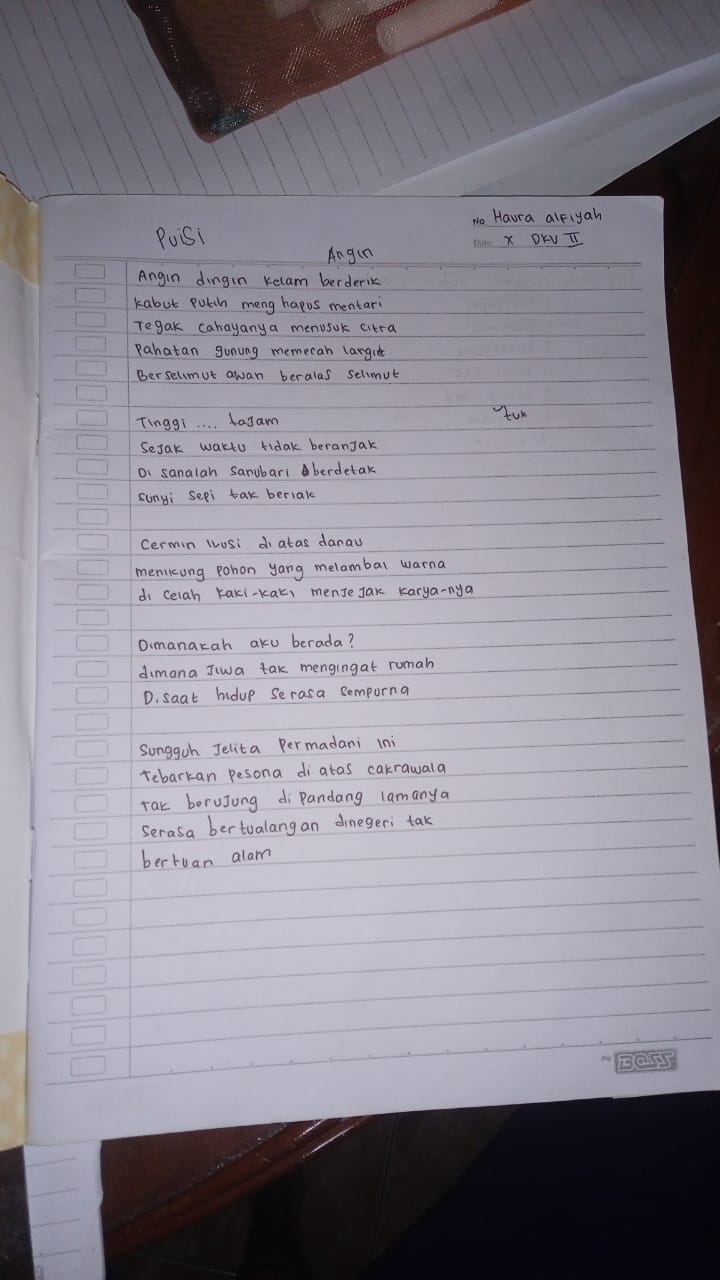 No Haura alfiyah
Puisi
Date: X DKV II
Angin
Angin dingin kelam berderik
kabut putih meng hapus mentari
Tegak cahayanya menusuk citra
Pahatan gunung memecah langit
Berselimut awan beralas selimut
Tinggi .... tajam
Tuk
Sejak waktu tidak beranjak
Di sanalah sanubari berdetak
sunyi sepi tak beriak
Cermin ilusi di atas danau
menikung pohon yang melambai warna
di celah kaki-kaki menjejak karya-nya
Dimanakah aku berada?
dimana Jiwa tak mengingat rumah
Disaat hidup serasa sempurna
Sungguh Jelita Permadani ini
Tebarkan pesona di atas cakrawala
tak berujung di pandang lamanya
serasa bertualangan dinegeri tak
bertuan alam
BOSS